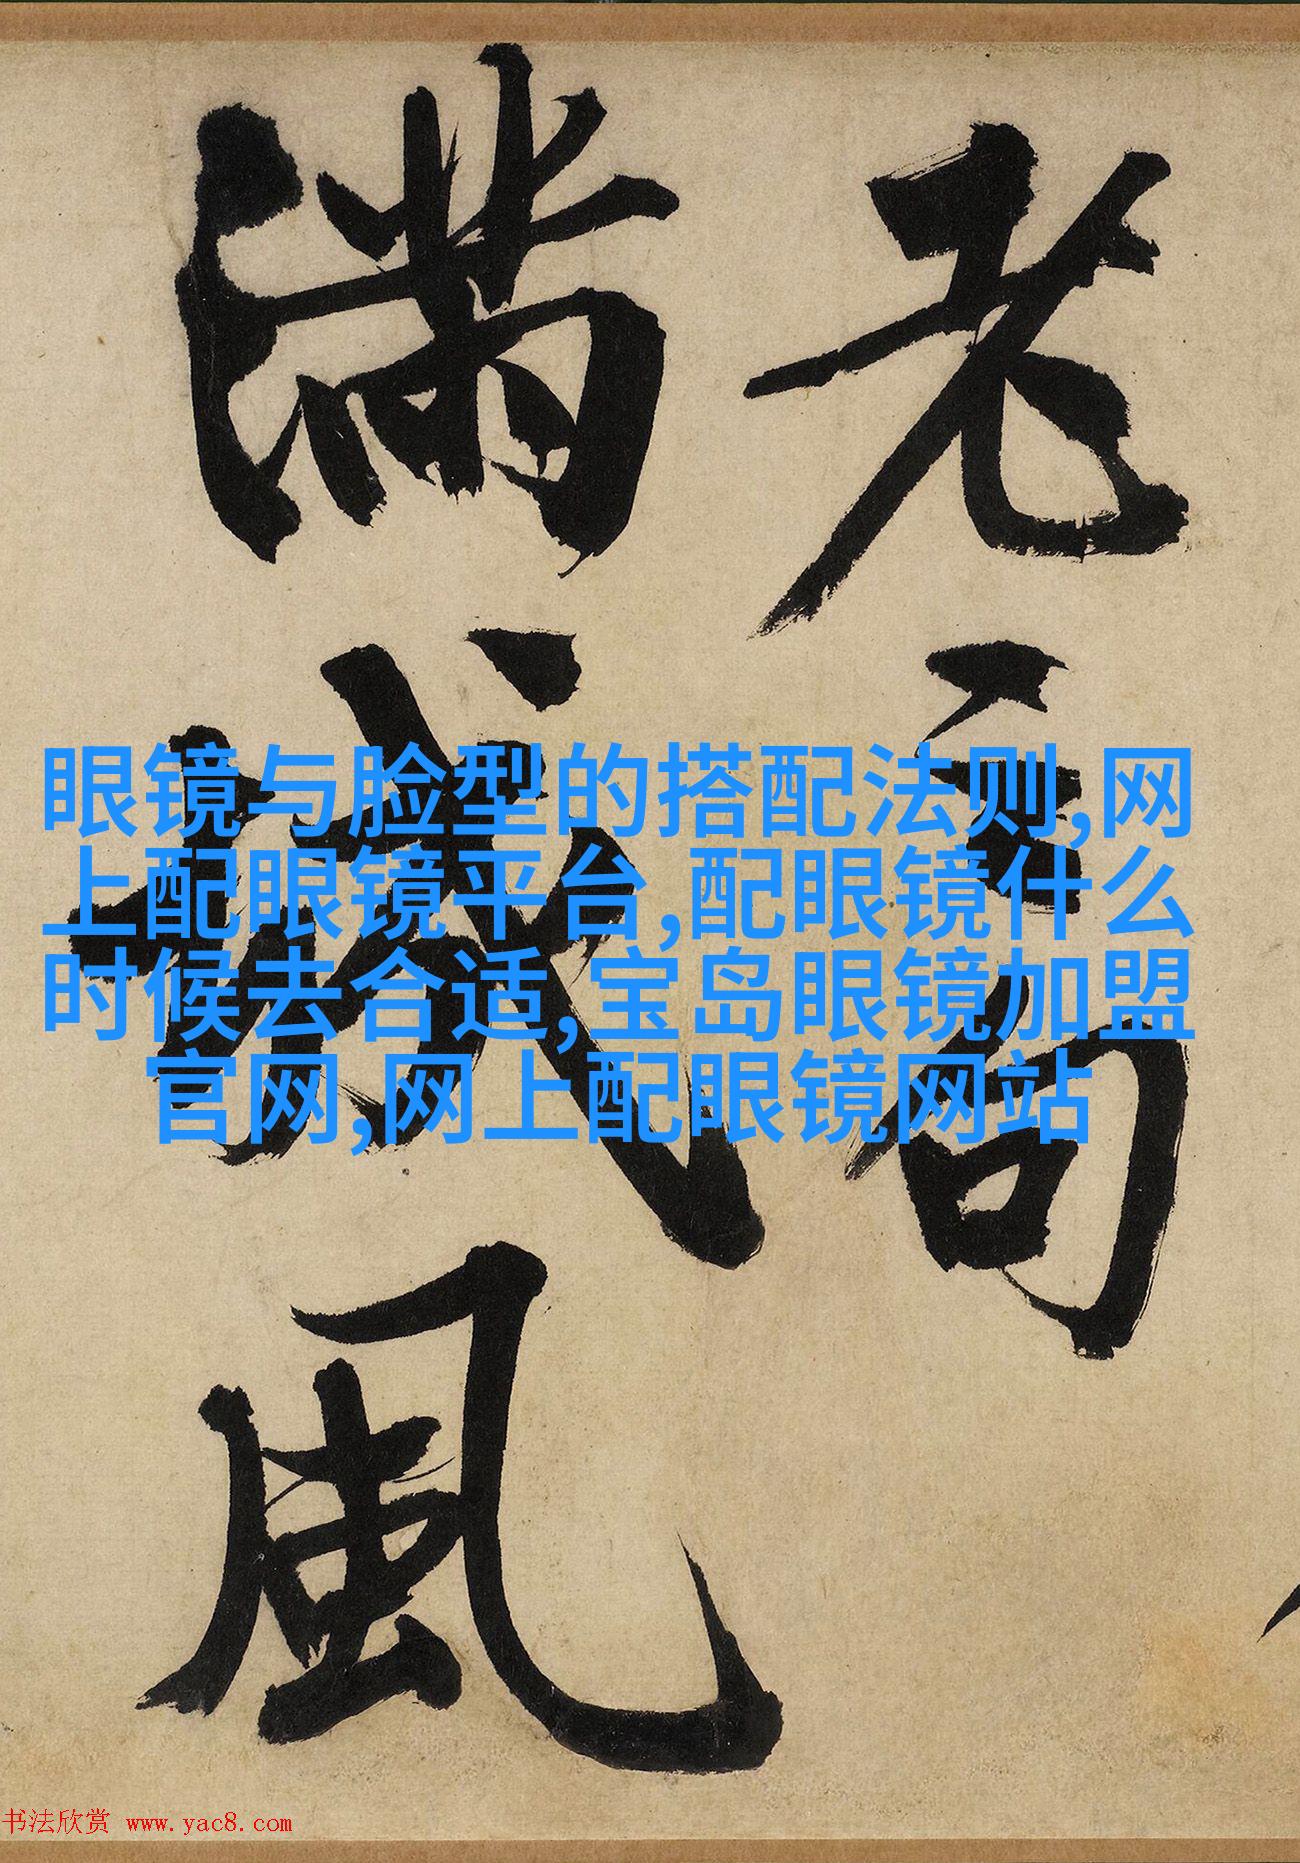 老 句
滿城風
眼镜与脸型的搭配法则,网
上配眼镜平台,配眼镜什么
时候去合适,宝岛眼镜加盟
官网,网上配眼镜网站
书法欣赏 www.yac8.com